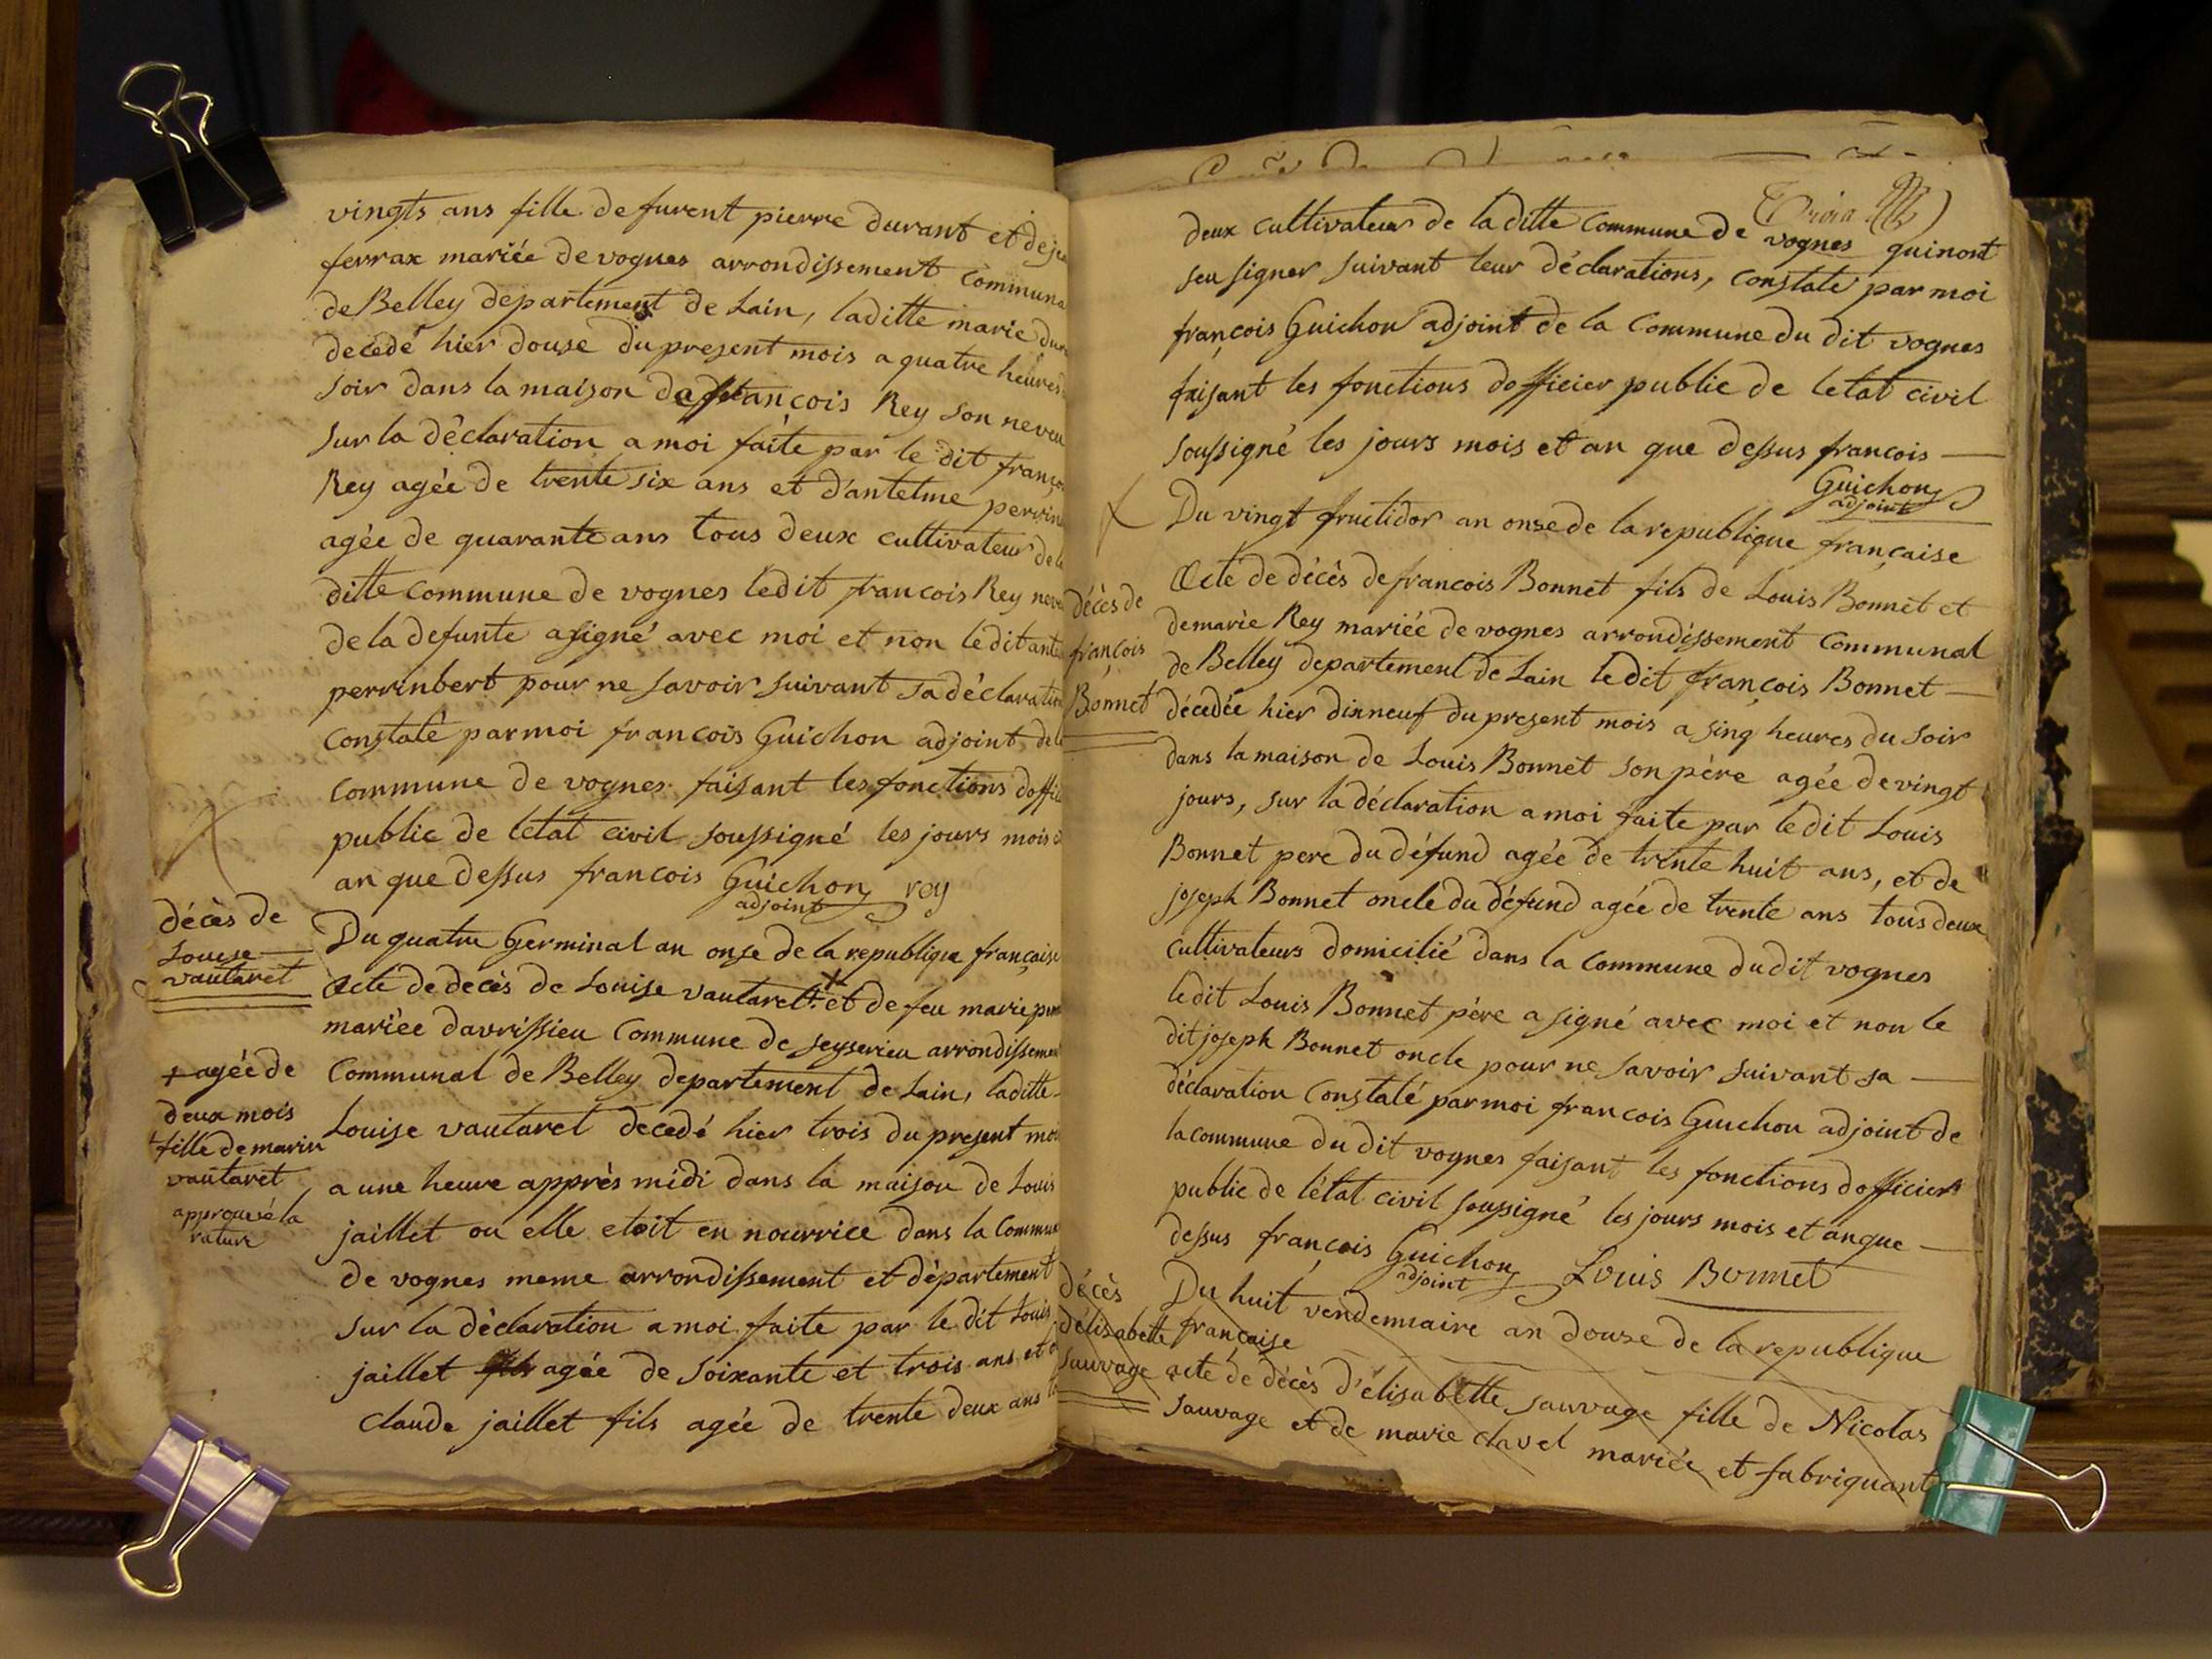 vingts ans fille de furent pierre durant et de
ferrax mariée de vognes arrondissement Communa
de Belley departement de Lain, laditte marie
decedé hier douse du present mois a quatre heures
soir dans la maison de françois Rey son neveu
sur la déclaration a moi faite par le dit franço
Rey agée de trente six ans et d'antelme
agée de quarante ans tous deux cultivateur de
ditte commune de vognes ledit francois Rey nev
de la defunte a signé avec moi et non le dit ant
perrinbert pour ne savoir suivant sa déclaration
Constaté par moi francois Guichon adjoint de
commune de vognes faisant les fonctions d'offi
public de letat civil soussigné les jours mois
an que dessus francois Guichon rey
adjoint
décès de
Louise
vautaret
Du quatre Germinal an onse de la republique française
Acte de decès de Louise vautaret + et de feu marie
mariée davrissieu Commune de seyserieu arrondissemen
+ agée de
deux mois
fille de marin
vautaret
approuvé la
rature
Communal de Belley departement de Lain, laditte
Louise vautaret decedé hier trois du present moi
a une heure apprès midi dans la maison de Louis
jaillet ou elle etoit en nourrice dans la Commun
de vognes meme arrondissement et département
sur la déclaration a moi faite par le dit Louis
jaillet agée de soixante et trois ans et
claude jaillet fils agée de trente deux ans
deux cultivateur de laditte Commune de vognes quinont
seu signer suivant leur déclarations, constaté par moi
françois Guichon adjoint de la Commune du dit vognes
faisant les fonctions dofficier public de letat civil
soussigné les jours mois et an que dessus francois
Guichon
adjoint
Du vingt fructidor an onse de la republique française
décès de
françois
Bonnet
Acte de décès de francois Bonnet fils de Louis Bonnet et
de marie Rey mariée de vognes arrondissement Communal
de Belley departement de Lain ledit françois Bonnet
décedée hier dixneuf du present mois a sinq heures du soir
dans la maison de Louis Bonnet son père agée de vingt
jours, sur la déclaration a moi faite par ledit Louis
Bonnet pere du défund agée de trente huit ans, et de
joseph Bonnet oncle du défund agée de trente ans tous deux
cultivateurs domicilié dans la Commune du dit vognes
ledit Louis Bonnet père a signé avec moi et non le
dit joseph Bonnet oncle pour ne savoir suivant sa
déclaration Constaté par moi francois Guichon adjoint de
la commune du dit vognes faisant les fonctions dofficier
public de l'état civil soussigné les jours mois et an que
dessus françois Guichon Louis Bonnet
adjoint
décès
délisabette
sauvage
Du huit vendemiaire an douze de la republique
française
acte de décès d'élisabette sauvage fille de Nicolas
sauvage et de marie clavel mariée et fabriquant